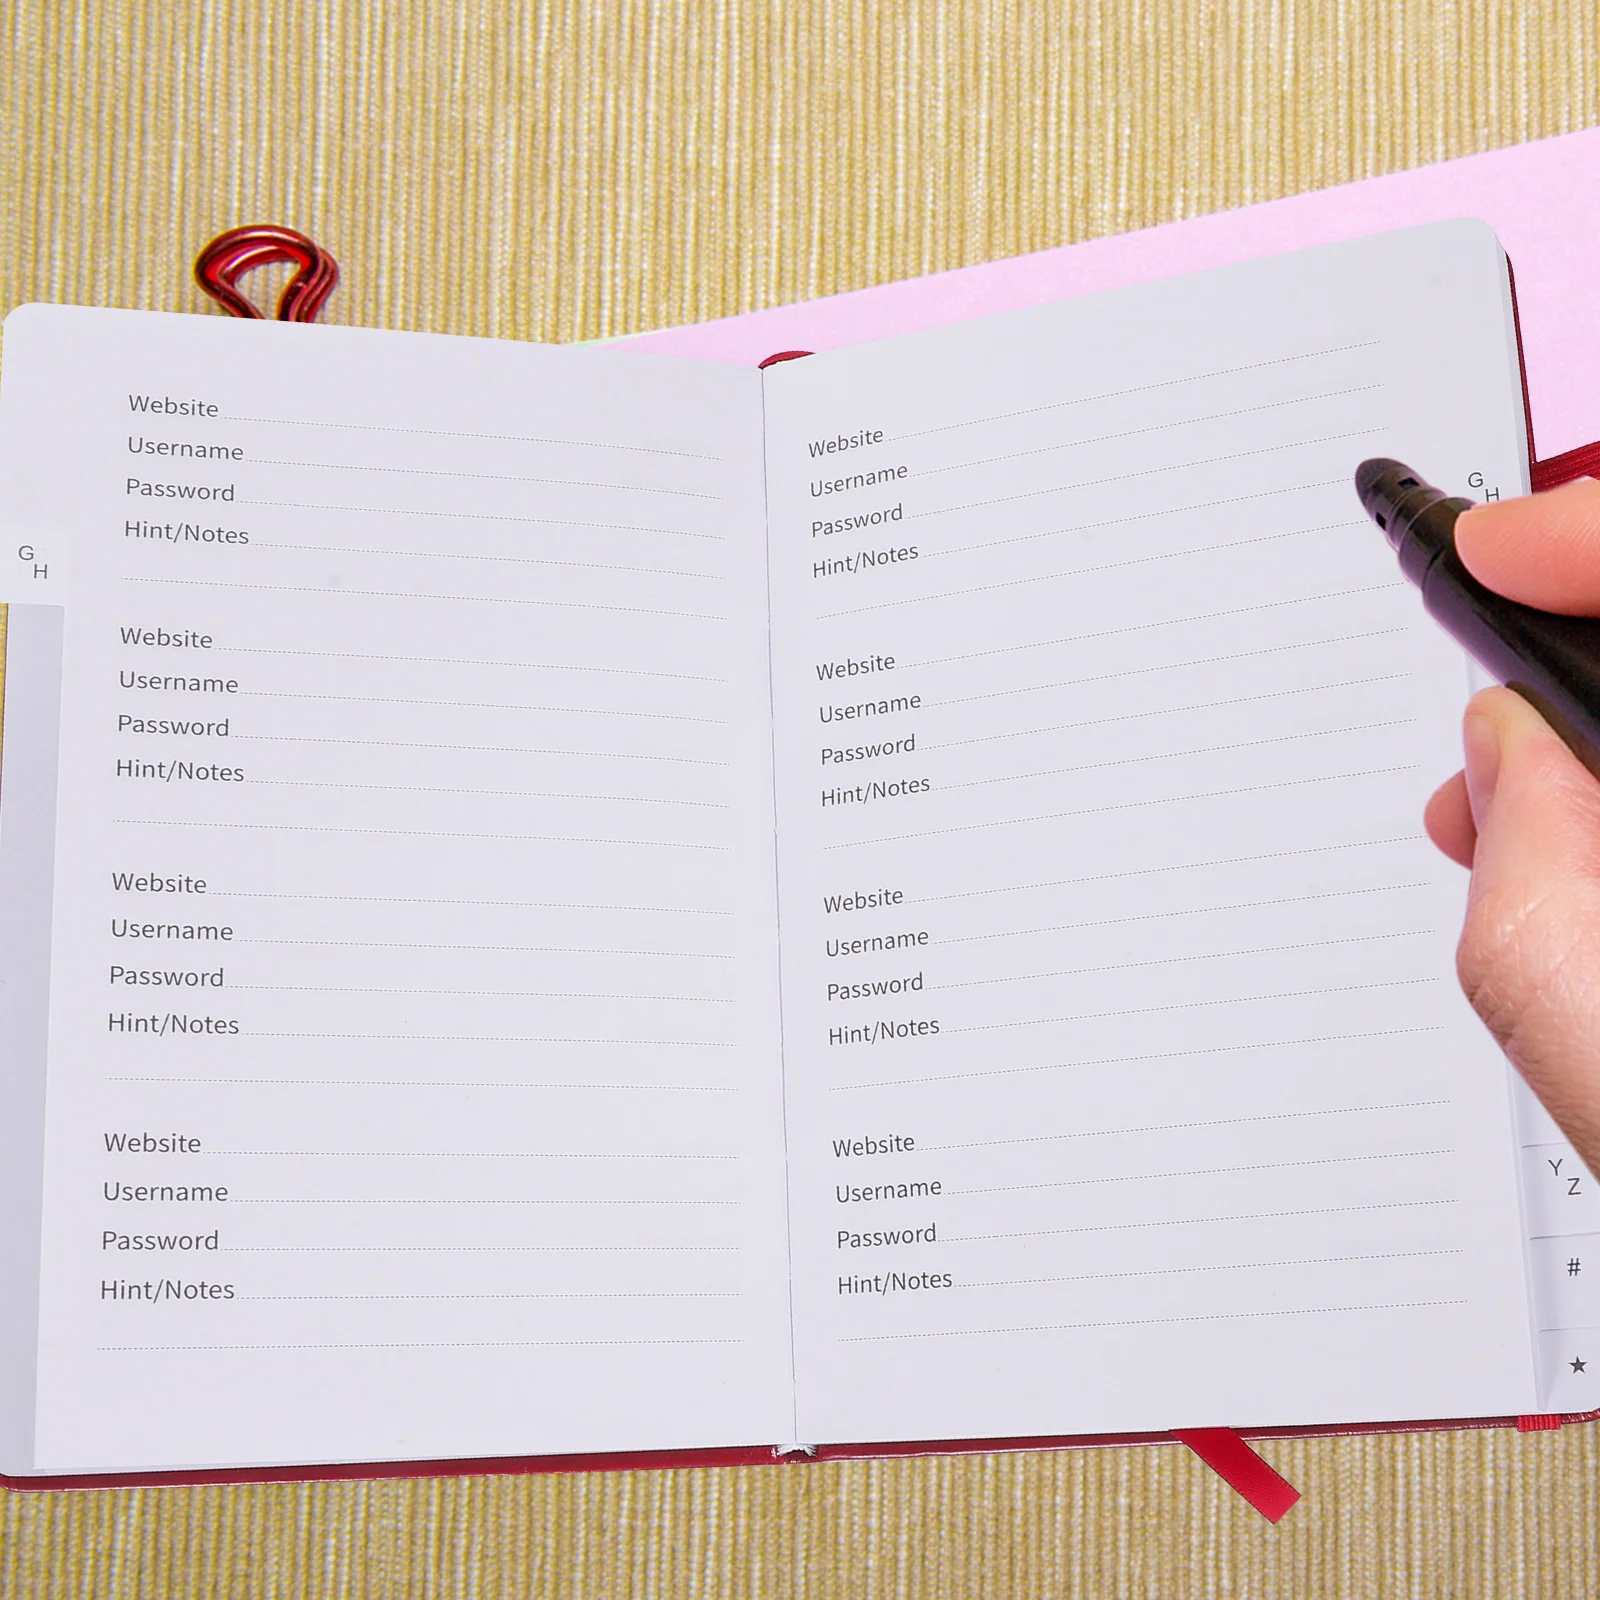 Website
Username
Password
Hint/Notes
Website
Username
Password
Hint/Notes
Website
Username
Password
Hint/Notes
Website
Username
Password
Hint/Notes
G
H
Website
Username
Password
Hint/Notes
Website
Username
Password
Hint/Notes
Website
Username
Password
Hint/Notes
Website
Username
Password
Hint/Notes
G
H
Y
Z
#
★